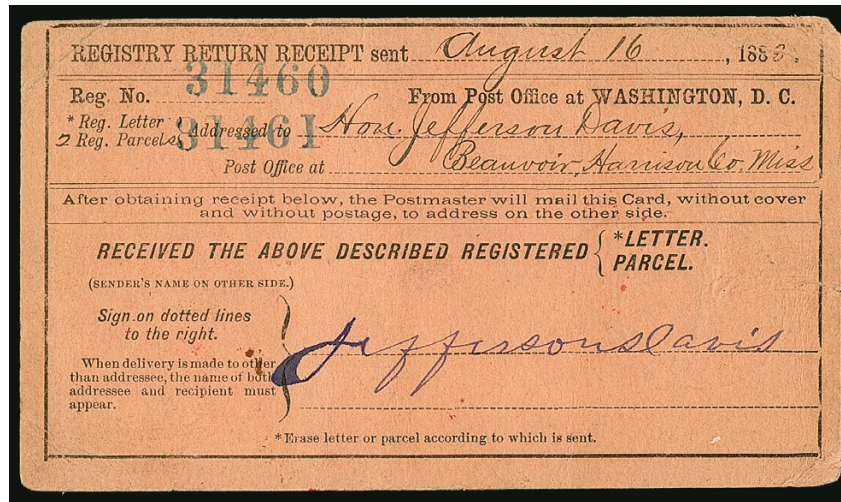 REGISTRY RETURN RECEIPT sent August 16, 1883.
31460
Reg. No. From Post Office at WASHINGTON, D. C.
* Reg. Letter
31461 Addressed to Hon. Jefferson Davis,
2 Reg. Parcels
Post Office at Beauvoir, Harrison Co. Miss
After obtaining receipt below, the Postmaster will mail this Card, without cover
and without postage, to address on the other side.
RECEIVED THE ABOVE DESCRIBED REGISTERED { *LETTER.
PARCEL.
(SENDER'S NAME ON OTHER SIDE.)
Sign on dotted lines
to the right.
Jefferson Davis
When delivery is made to other
than addressee, the name of both
addressee and recipient must
appear.
*Erase letter or parcel according to which is sent.